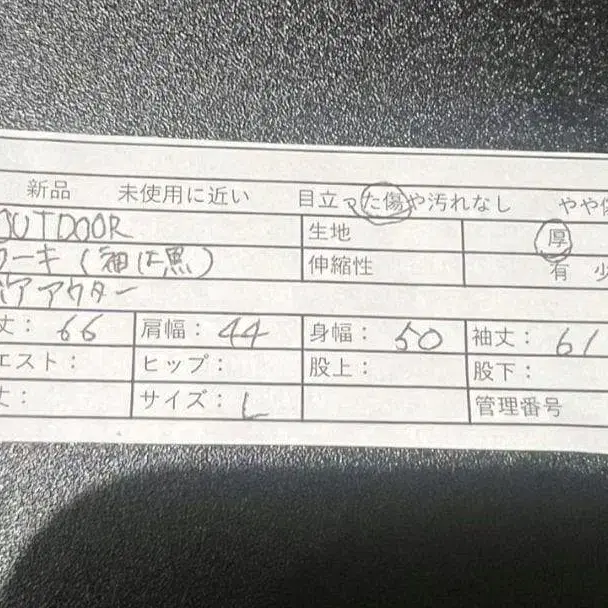 新品 未使用に近い 目立った傷や汚れなし やや傷
OUTDOOR 生地 厚
カーキ(袖は黒) 伸縮性 有 少
アウター
丈: 66 肩幅: 44 身幅: 50 袖丈: 61
エスト: ヒップ: 股上: 股下:
丈: サイズ: L 管理番号